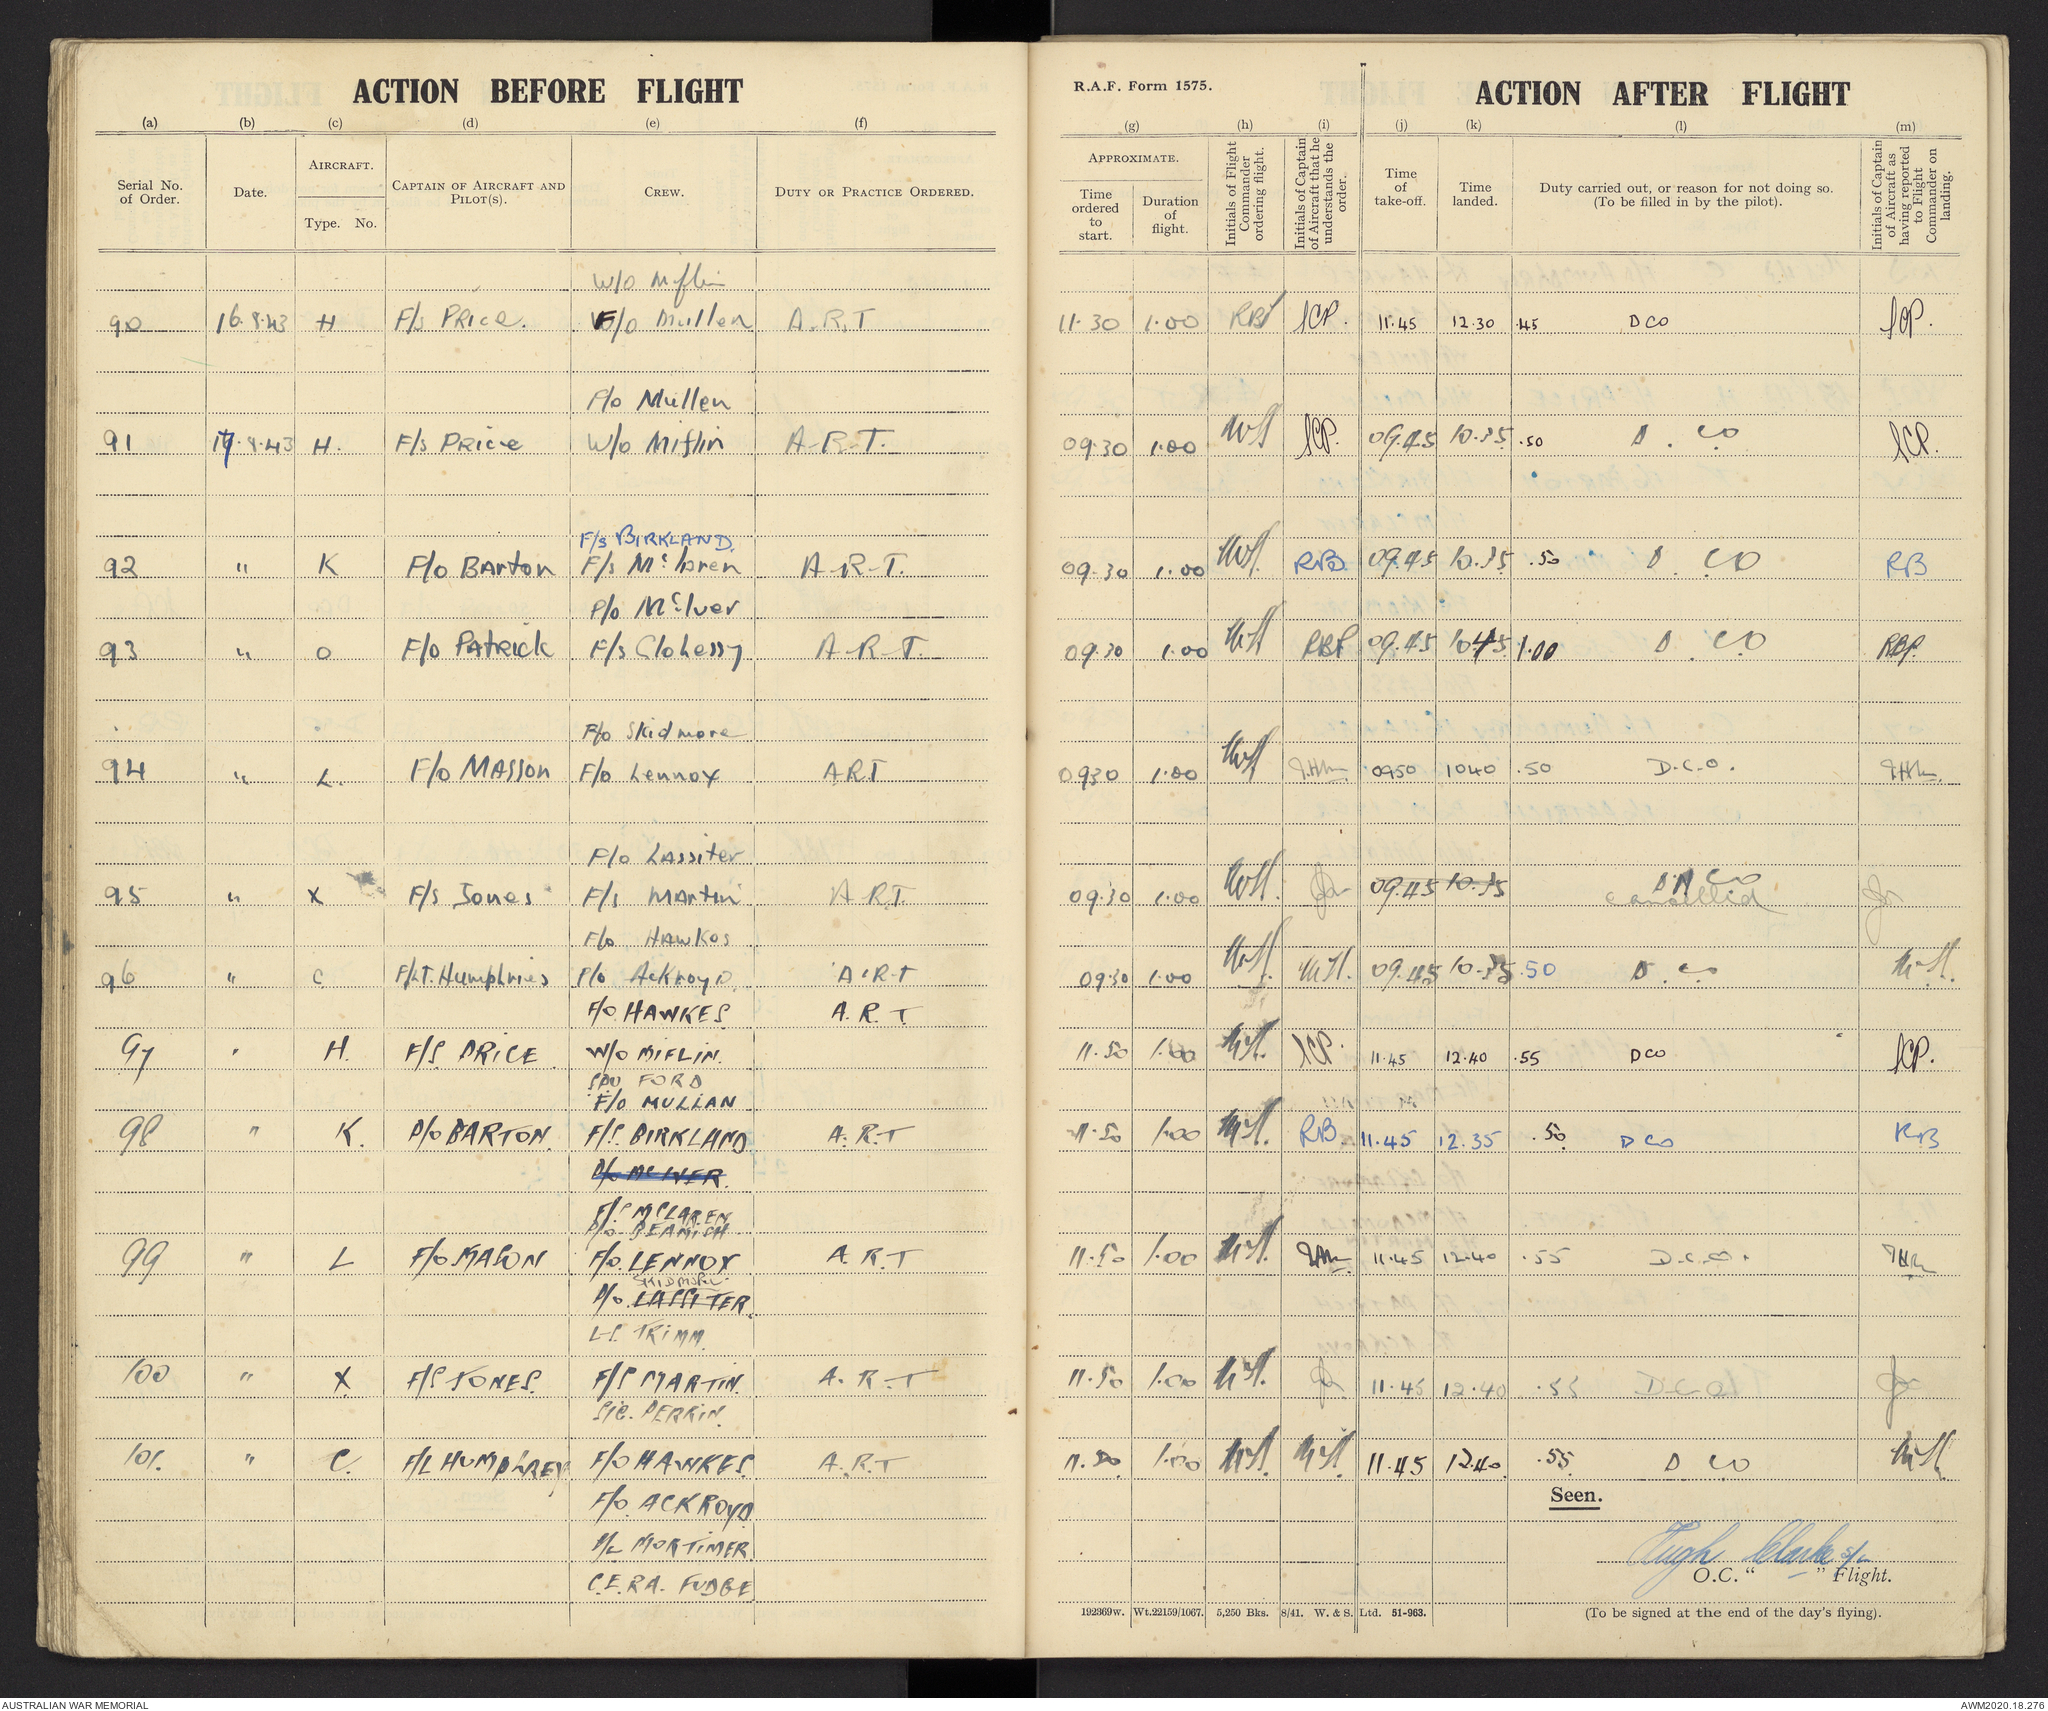 ACTION BEFORE FLIGHT
(a) (b) (c) (d) (e) (f)
Serial No. of Order. Date. AIRCRAFT. Type. No. CAPTAIN OF AIRCRAFT AND PILOT(S). CREW. DUTY OR PRACTICE ORDERED.
W/O Miflin
90 16.8.43 H F/s PRice. F/o Mullen A.R.T
P/o Mullen
91 17.8.43 H. F/s PRice W/o Miflin A-R-T.
F/s BIRKLAND.
92 " K F/o BARton F/s Mc.laren A-R-T.
P/o Mc.Iver
93 " O F/o PAtRick F/s Clohessy A-R-T.
P/o Skidmore
94 " L. F/o MASSon F/o Lennox A.R.T
F/o LAssiter
95 " X F/s Jones F/s MARtin A.R.T.
F/o HAWKes
96 " C F/Lt. Humphries P/o AcKRoyD. A.R.T
F/o HAWKES. A.R.T.
97 " H. F/S PRICE W/O MIFLIN.
SPO FORD
F/o MULLAN
98 " K. P/o BARTON. F/S. BIRKLAND A.R.T
P/o McIVER.
F/S McLAREN
P/o. BEAMISH
99 " L F/o MASON F/o. LENNOX A.R.T
SKIDMORE
P/o. LASSITER.
LS. TRIMM
100 " X F/S JONES. F/S MARTIN. A.R.T
SIG. PERKIN.
101. " C. F/L HUMPHREY F/O HAWKES. A.R.T
F/o. ACKROYD
F/L MORTIMER
C.E.R.A. FUDGE
R.A.F. Form 1575. ACTION AFTER FLIGHT
(g) (h) (i) (j) (k) (l) (m)
APPROXIMATE. Time ordered to start. Duration of flight. Initials of Flight Commander ordering flight. Initials of Captain of Aircraft that he understands the order. Time of take-off. Time landed. Duty carried out, or reason for not doing so. (To be filled in by the pilot). Initials of Captain of Aircraft as having reported to Flight Commander on landing.
11.30 1.00 RBP SCP. 11.45 12.30 .45 DCO SCP.
09.30 1.00 SCP. 09.45 10.35 .50 D.CO SCP.
09.30 1.00 RB. 09.45 10.35 .50 D.CO RB
09.30 1.00 RBP 09.45 10.45 1.00 D.CO RBP.
0930 1.00 0950 1040 .50 D.C.O.
09.30 1.00 09.45 10.35 DNCO
cancelled
09.30 1.00 09.45 10.35 .50 D.CO
11.50 1.00 SCP. 11.45 12.40 .55 DCO SCP.
11.50 1.00 RB. 11.45 12.35 .50 DCO RB
11.50 1.00 11.45 12.40 .55 D.C.O.
11.50 1.00 11.45 12.40 .55 D.C.O.
11.50 1.00 11.45 12.40 .55 D CO
Seen.
Hugh Clarke S/L
O.C. " " Flight.
192369w. Wt.22159/1067. 5,250 Bks. 8/41. W. & S. Ltd. 51-963. (To be signed at the end of the day's flying).
AUSTRALIAN WAR MEMORIAL AWM2020.18.276